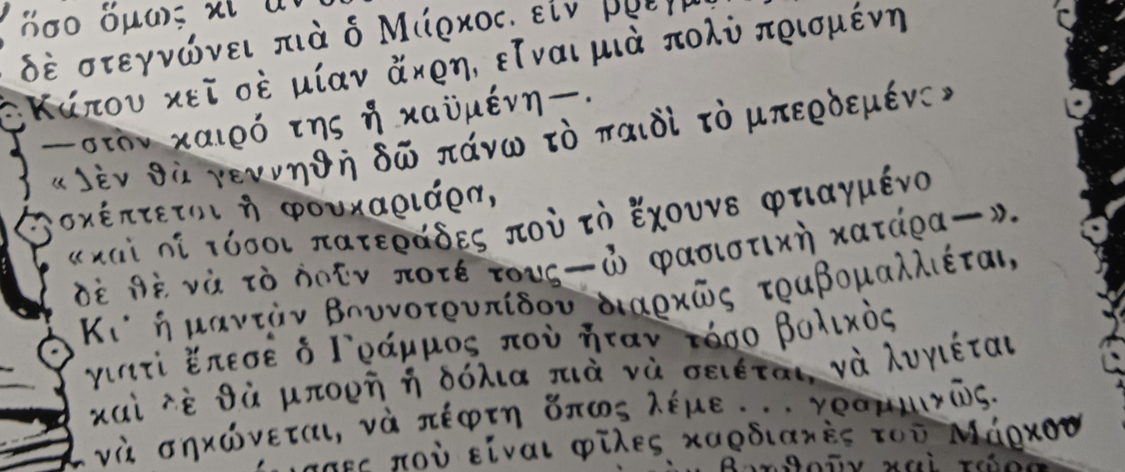 ὅσο ὅμως κι
δὲ στεγνώνει πιὰ ὁ Μάρκος. εἶν
Κάπου κεῖ σὲ μίαν ἄκρη, εἶναι μιὰ πολὺ πρισμένη
—στὸν καιρό της ἡ καϋμένη—.
«Δὲν θὰ γεννηθῆ δῶ πάνω τὸ παιδὶ τὸ μπερδεμένο»
σκέπτεται ἡ φουκαριάρα,
«καὶ οἱ τόσοι πατεράδες ποὺ τὸ ἔχουνε φτιαγμένο
δὲ θὲ νὰ τὸ ἰδοῦν ποτέ τους—ὦ φασιστικὴ κατάρα—».
Κι' ἡ μαντὰν Βουνοτρυπίδου διαρκῶς τραβομαλλιέται,
γιατὶ ἔπεσε ὁ Γράμμος ποὺ ἦταν τόσο βολικὸς
καὶ δὲ θὰ μπορῆ ἡ δόλια πιὰ νὰ σειέται, νὰ λυγιέται
νὰ σηκώνεται, νὰ πέφτη ὅπως λέμε ... γραμμικῶς.
ποὺ εἶναι φῖλες καρδιακὲς τοῦ Μάρκου